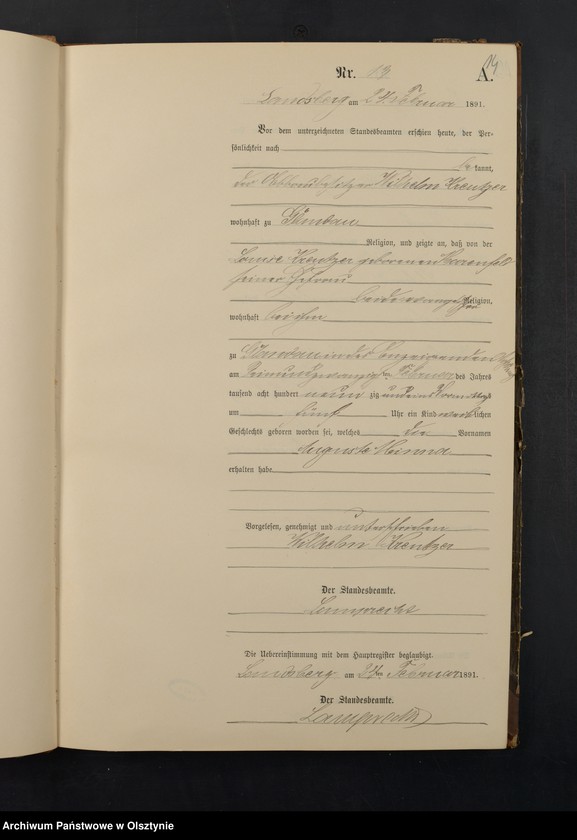 14
Nr. 13. A.
Landsberg am 24. Februar 1891.
Vor dem unterzeichneten Standesbeamten erschien heute, der Per-
sönlichkeit nach
be kannt,
der Wilhelm Kreutzer
wohnhaft zu
Religion, und zeigte an, daß von der
Louise Kreutzer geborenen
seiner Ehefrau
beide Religion,
wohnhaft bei ihm
zu in des Anzeigenden
am Februar des Jahres
tausend acht hundert neun zig und ein Vormittags
um fünf Uhr ein Kind weiblichen
Geschlechts geboren worden sei, welches die Vornamen
Auguste Minna
erhalten habe
Vorgelesen, genehmigt und unterschrieben
Wilhelm Kreutzer
Der Standesbeamte.
Lamprecht
Die Uebereinstimmung mit dem Hauptregister beglaubigt.
Landsberg am 24ten Februar 1891.
Der Standesbeamte.
Lamprecht
Archiwum Państwowe w Olsztynie